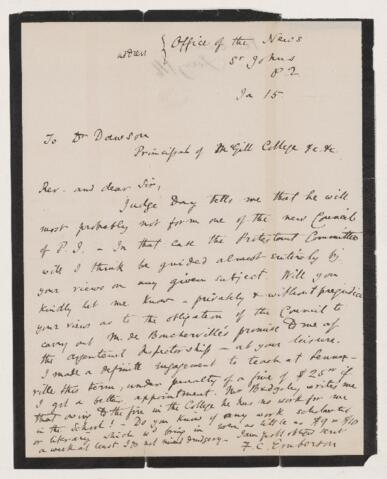 address { Office of the News
St Johns
P.Q
Ja 15
To Dr Dawson
Principal of McGill College &c. &c.
Rev. and dear Sir,
Judge Day tells me that he will
most probably not form one of the new Council
of P.I. - In that case the Protestant Committee
will I think be guided almost entirely by
your views on any given subject. Will you
kindly let me know - privately & without prejudice
your views as to the obligation of the Council to
carry out M. de Boucherville's promise to me of
the Inspectorship - at your leisure.
I made a definite engagement to teach at Lennox-
ville this term, under penalty of a fine of $25 if
I got a better appointment. Mr Badgley writes me
that owing to the fire in the College he has no work for me
in the School! - Do you know of any work scholastic
or literary which wd bring in even as little as $9 or $10
a week at least I do not mind drudgery. I am yr obt servt
F. C. Emberson